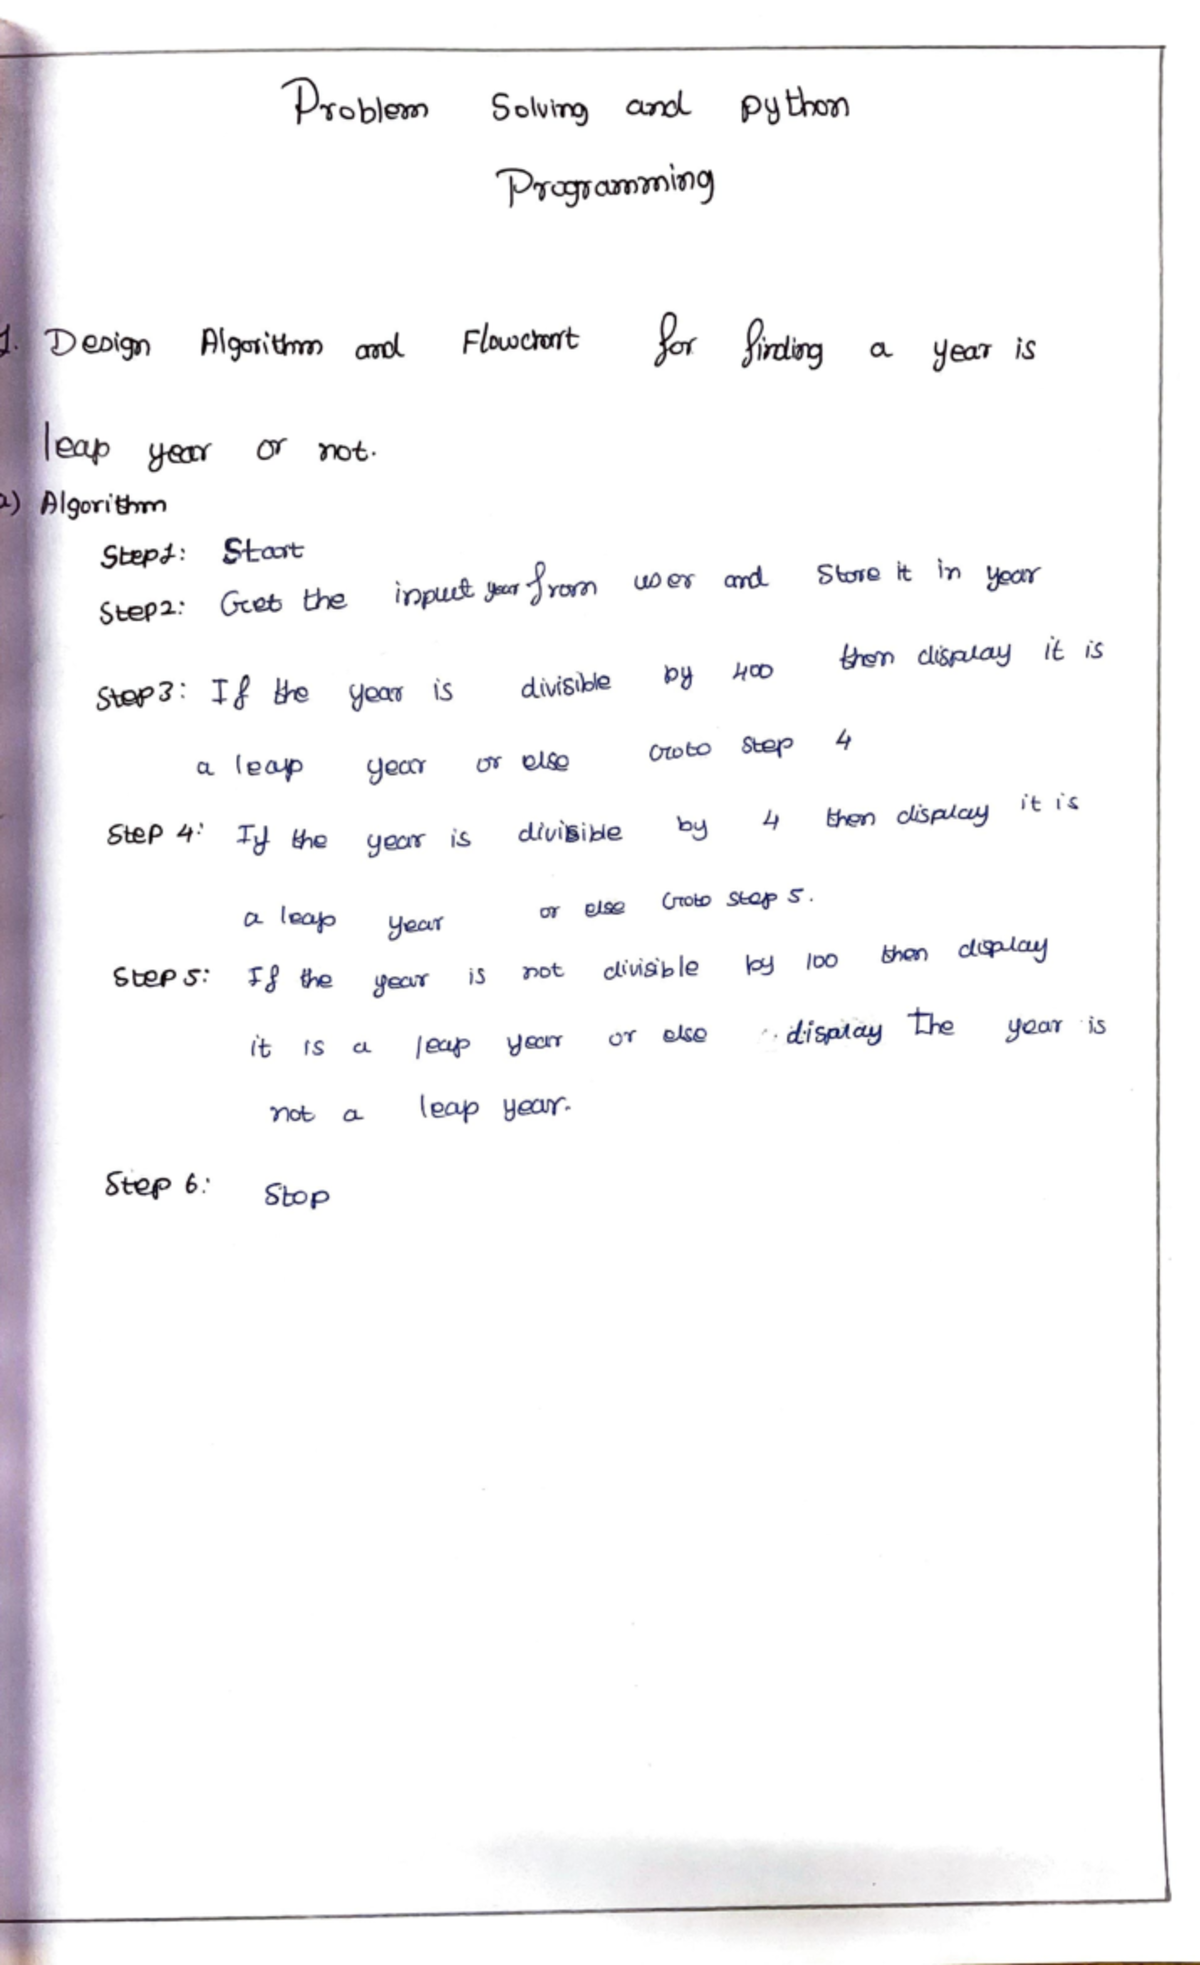 Problem Solving and python
Programming
1. Design Algorithm and Flowchart for finding a year is
leap year or not.
a) Algorithm
Step1: Start
Step2: Get the input year from user and Store it in year
Step3: If the year is divisible by 400 then display it is
a leap year or else Goto step 4
Step 4: If the year is divisible by 4 then display it is
a leap year or else Goto step 5.
Step 5: If the year is not divisible by 100 then display
it is a leap year or else display The year is
not a leap year.
Step 6: Stop